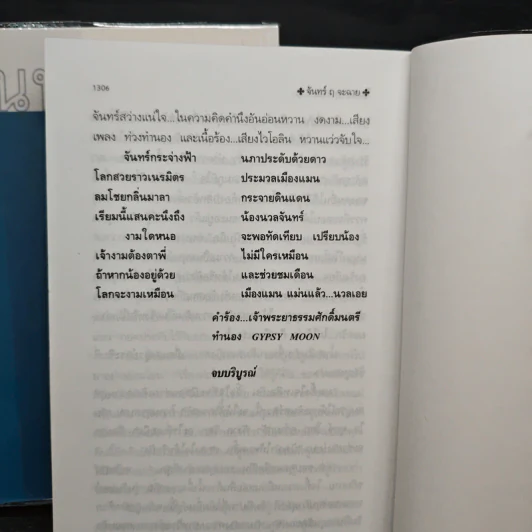 1306
✤ จันทร์ ฤ จะฉาย ✤
จันทร์สว่างแน่ใจ...ในความคิดคำนึงอันอ่อนหวาน งดงาม...เสียง
เพลง ท่วงทำนอง และเนื้อร้อง...เสียงไวโอลิน หวานแว่วจับใจ...
จันทร์กระจ่างฟ้า นภาประดับด้วยดาว
โลกสวยราวเนรมิตร ประมวลเมืองแมน
ลมโชยกลิ่นมาลา กระจายดินแดน
เรียมนี้แสนคะนึงถึง น้องนวลจันทร์
งามใดหนอ จะพอทัดเทียบ เปรียบน้อง
เจ้างามต้องตาพี่ ไม่มีใครเหมือน
ถ้าหากน้องอยู่ด้วย และช่วยชมเดือน
โลกจะงามเหมือน เมืองแมน แม่นแล้ว...นวลเอย
คำร้อง...เจ้าพระยาธรรมศักดิ์มนตรี
ทำนอง GYPSY MOON
จบบริบูรณ์